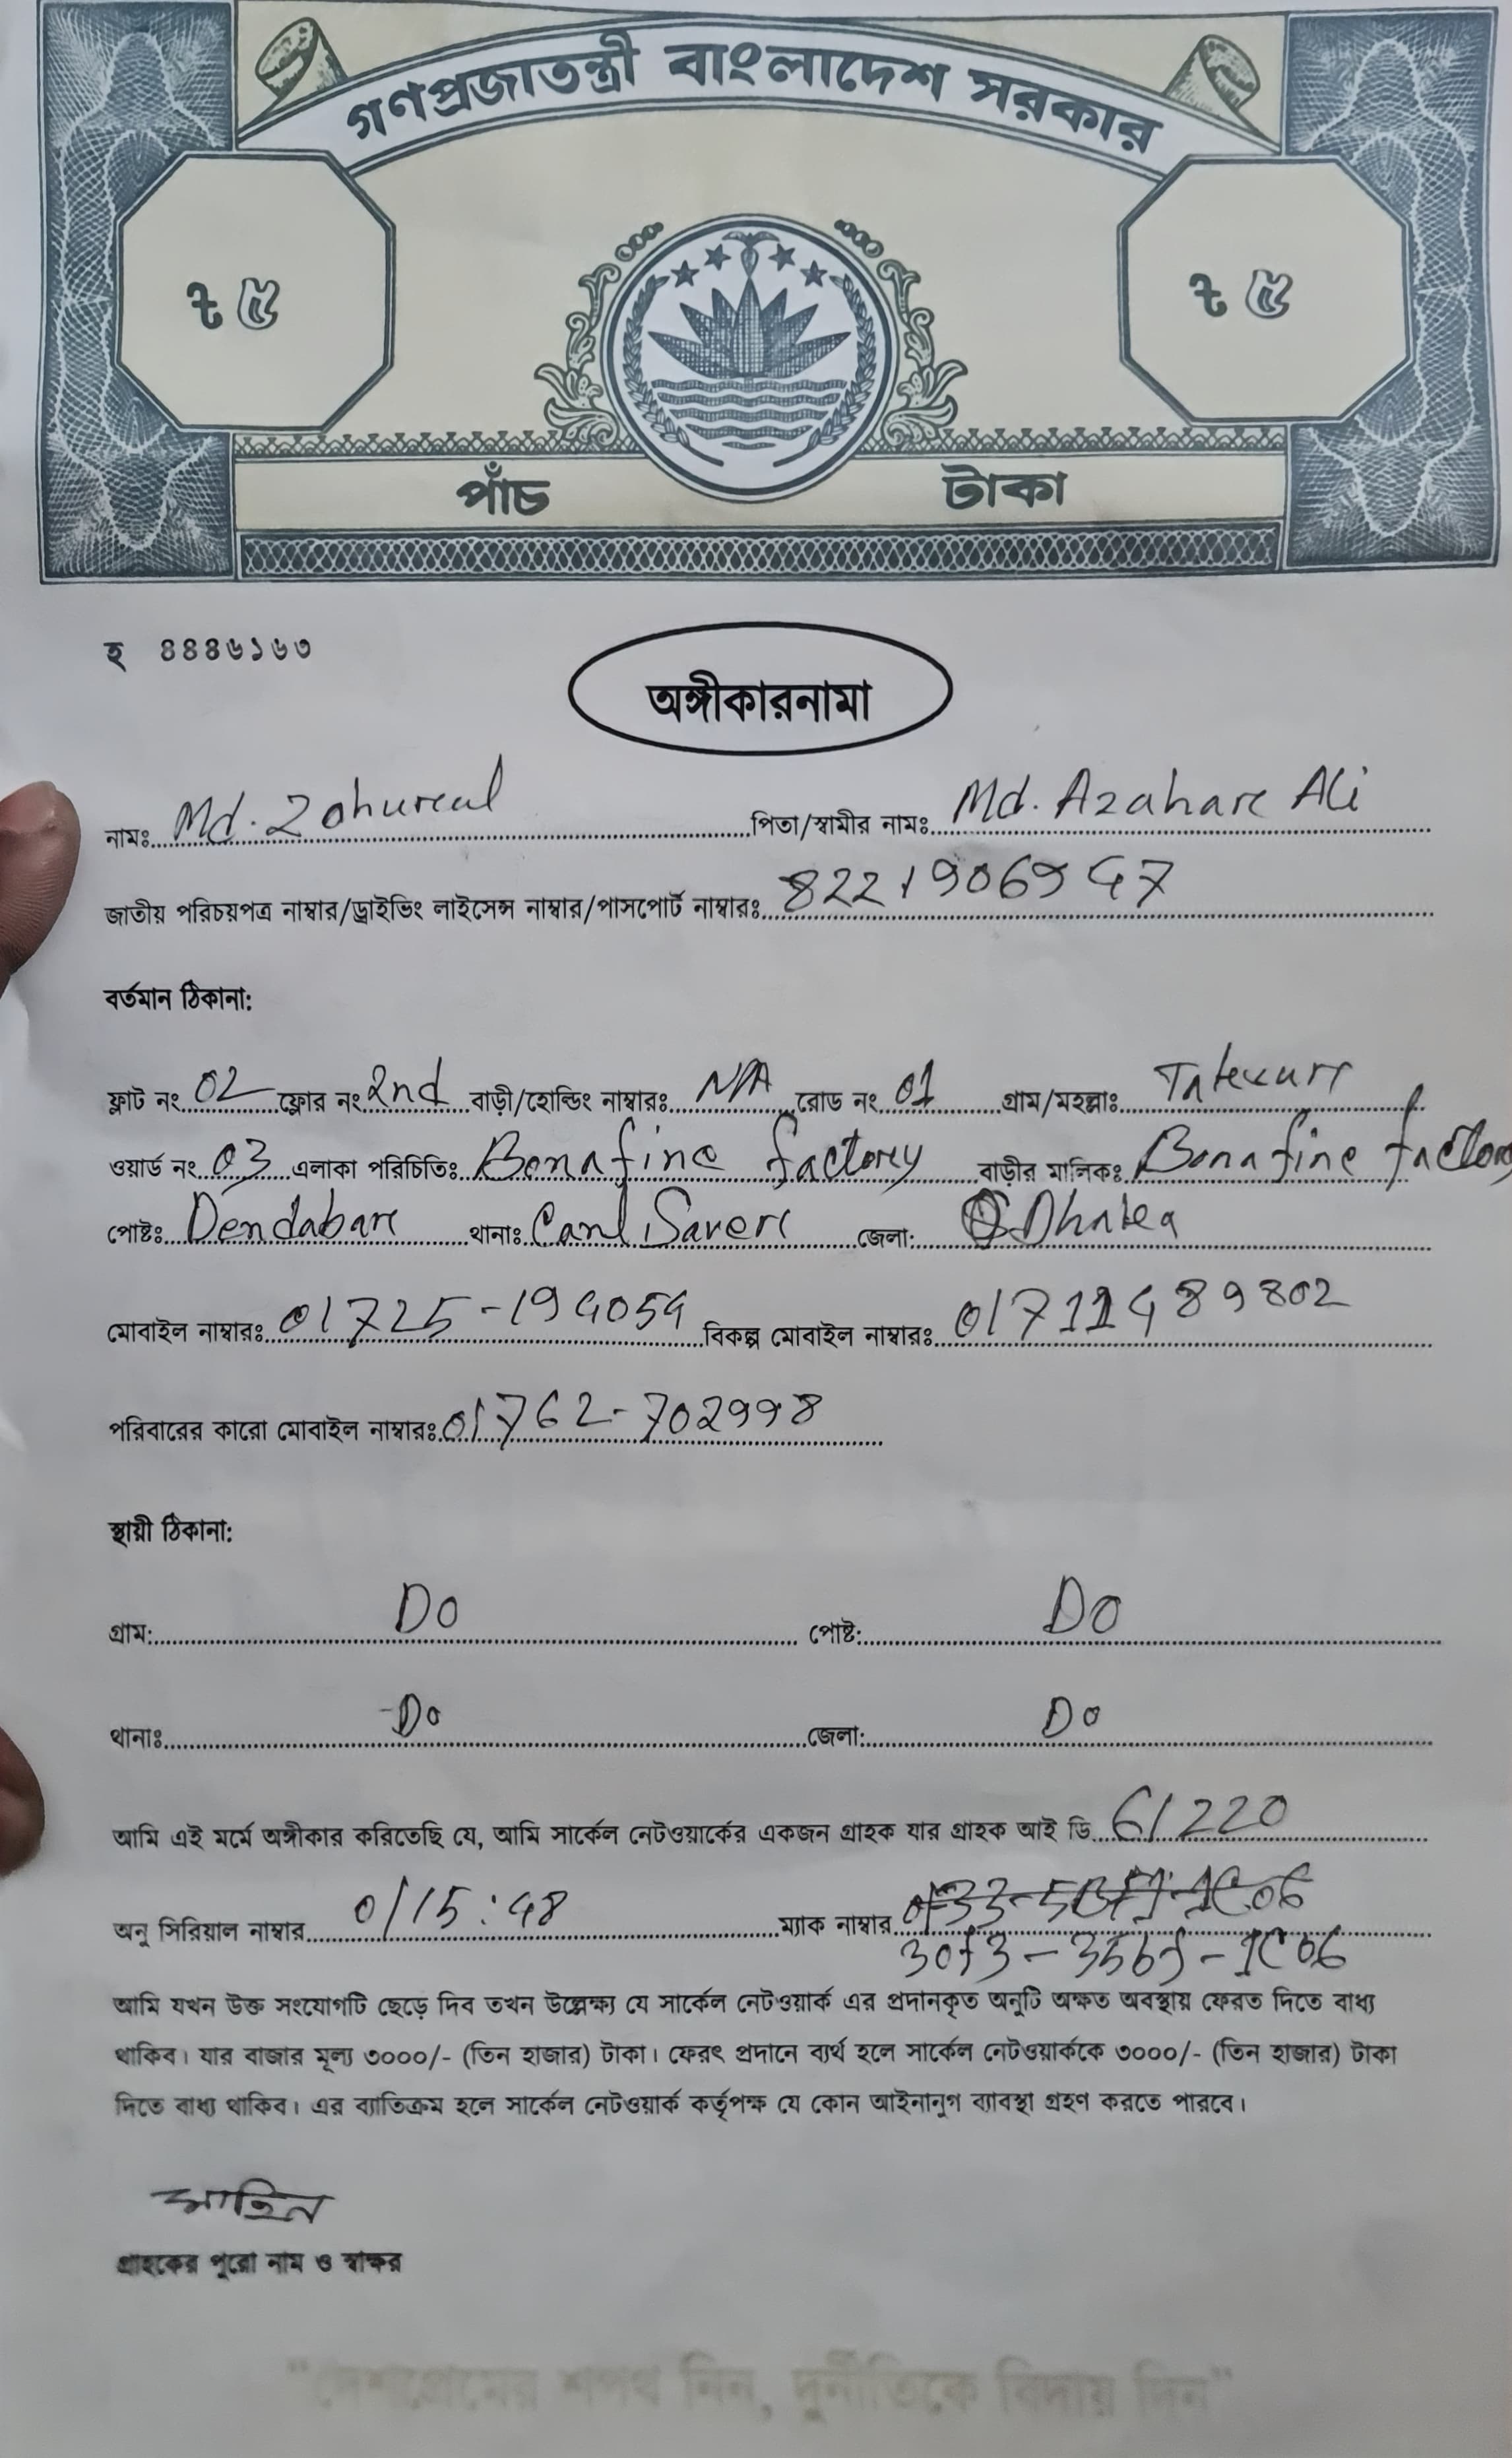 গণপ্রজাতন্ত্রী বাংলাদেশ সরকার
৳ ৫ ৳ ৫
পাঁচ টাকা
হ ৪৪৪৬১৬৩
অঙ্গীকারনামা
নামঃ Md. Zohurul পিতা/স্বামীর নামঃ Md. Azahar Ali
জাতীয় পরিচয়পত্র নাম্বার/ড্রাইভিং লাইসেন্স নাম্বার/পাসপোর্ট নাম্বারঃ 8221906947
বর্তমান ঠিকানা:
ফ্লাট নং 02 ফ্লোর নং 2nd বাড়ী/হোল্ডিং নাম্বারঃ N/A রোড নং 01 গ্রাম/মহল্লাঃ
ওয়ার্ড নং 03 এলাকা পরিচিতিঃ Bonafine factory বাড়ীর মালিকঃ Bonafine factory
পোষ্টঃ Dendabar থানাঃ Savar জেলা: Dhaka
মোবাইল নাম্বারঃ 01725-194054 বিকল্প মোবাইল নাম্বারঃ 01711489802
পরিবারের কারো মোবাইল নাম্বারঃ 01762-702998
স্থায়ী ঠিকানা:
গ্রাম: Do পোষ্ট: Do
থানাঃ Do জেলা: Do
আমি এই মর্মে অঙ্গীকার করিতেছি যে, আমি সার্কেল নেটওয়ার্কের একজন গ্রাহক যার গ্রাহক আই ডি 61220
অনু সিরিয়াল নাম্বার 0/15:48 ম্যাক নাম্বার
আমি যখন উক্ত সংযোগটি ছেড়ে দিব তখন উল্লেক্ষ্য যে সার্কেল নেটওয়ার্ক এর প্রদানকৃত অনুটি অক্ষত অবস্থায় ফেরত দিতে বাধ্য
থাকিব। যার বাজার মূল্য ৩০০০/- (তিন হাজার) টাকা। ফেরৎ প্রদানে ব্যর্থ হলে সার্কেল নেটওয়ার্ককে ৩০০০/- (তিন হাজার) টাকা
দিতে বাধ্য থাকিব। এর ব্যাতিক্রম হলে সার্কেল নেটওয়ার্ক কর্তৃপক্ষ যে কোন আইনানুগ ব্যাবস্থা গ্রহণ করতে পারবে।
গ্রাহকের পুরো নাম ও স্বাক্ষর
"দেশপ্রেমের শপথ নিন, দুর্নীতিকে বিদায় দিন"